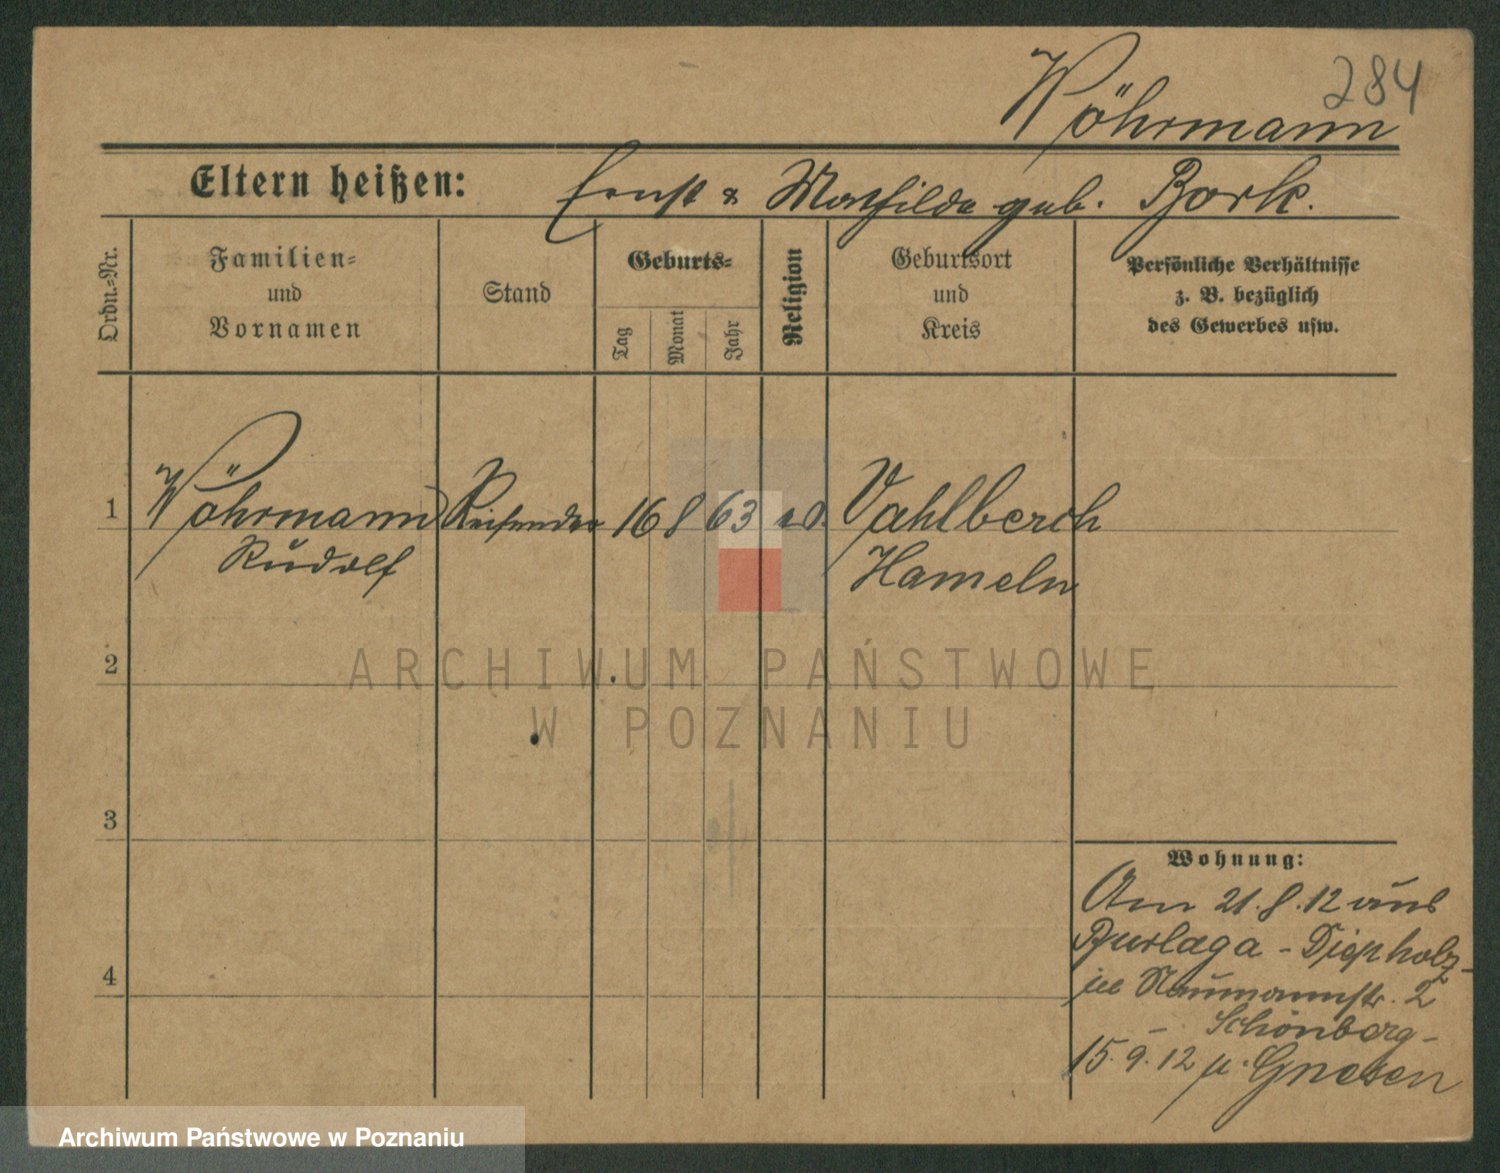 284
Wöhrmann
Eltern heißen: Ernst & Mathilde geb. Bork.
Ordn.-Nr.
Familien-
und
Vornamen
Stand
Geburts-
Tag
Monat
Jahr
Religion
Geburtsort
und
Kreis
Persönliche Verhältnisse
z. B. bezüglich
des Gewerbes usw.
1 Wöhrmann Reisender 16 8 63 Vahlberch
Rudolf Hameln
2
3
4
Wohnung:
Am 21.8.12 aus
Burlaga - Diepholz -
in Naumannstr. 2
- Schönberg -
15.9.12 n. Gnesen
ARCHIWUM PAŃSTWOWE
W POZNANIU
Archiwum Państwowe w Poznaniu